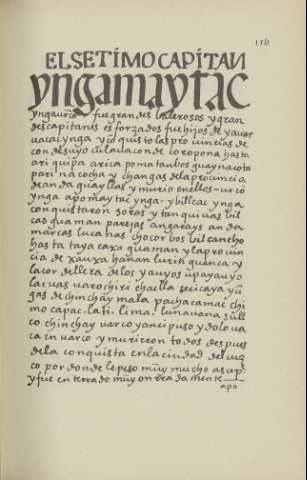 116
EL SETIMO CAPITAN
yngamaytac
ynga urco fue grandes balerosos y gran
des capitanes esforzados fue hijos de yauar
uacac ynga y conquistolas prouincias de
condesuyo cullaua conde coropona hasta
ari quipa arica poma tanbos guaynacota
pari na cocha y changas de la prouincia
de anda guayllas y murio en ellos urco
ynga apo maytac ynga y bilcac ynga
conquistaron soras y tanquiuas bil
cas guaman parejas angarays anda
marcas lucanas chocorbos bilcancho
hasta taya caxa guaman y la prouin
cia de xauxa hanan lurin guanca y
la cordellera de los yauyos upa yauyo
lacuas uarochiri chaclla seicaya yu
gas de chinchay mala pachacamac chi
mo capac la ti lima lunauana sull
co chinchay uarco yancipuso y dolo ua
ca en uarco y murieron todos despues
de la conquista en la ciudad del cuz
co por donde le peso muy mucho a su p.
y fue enterrado muy onrradamente
apo